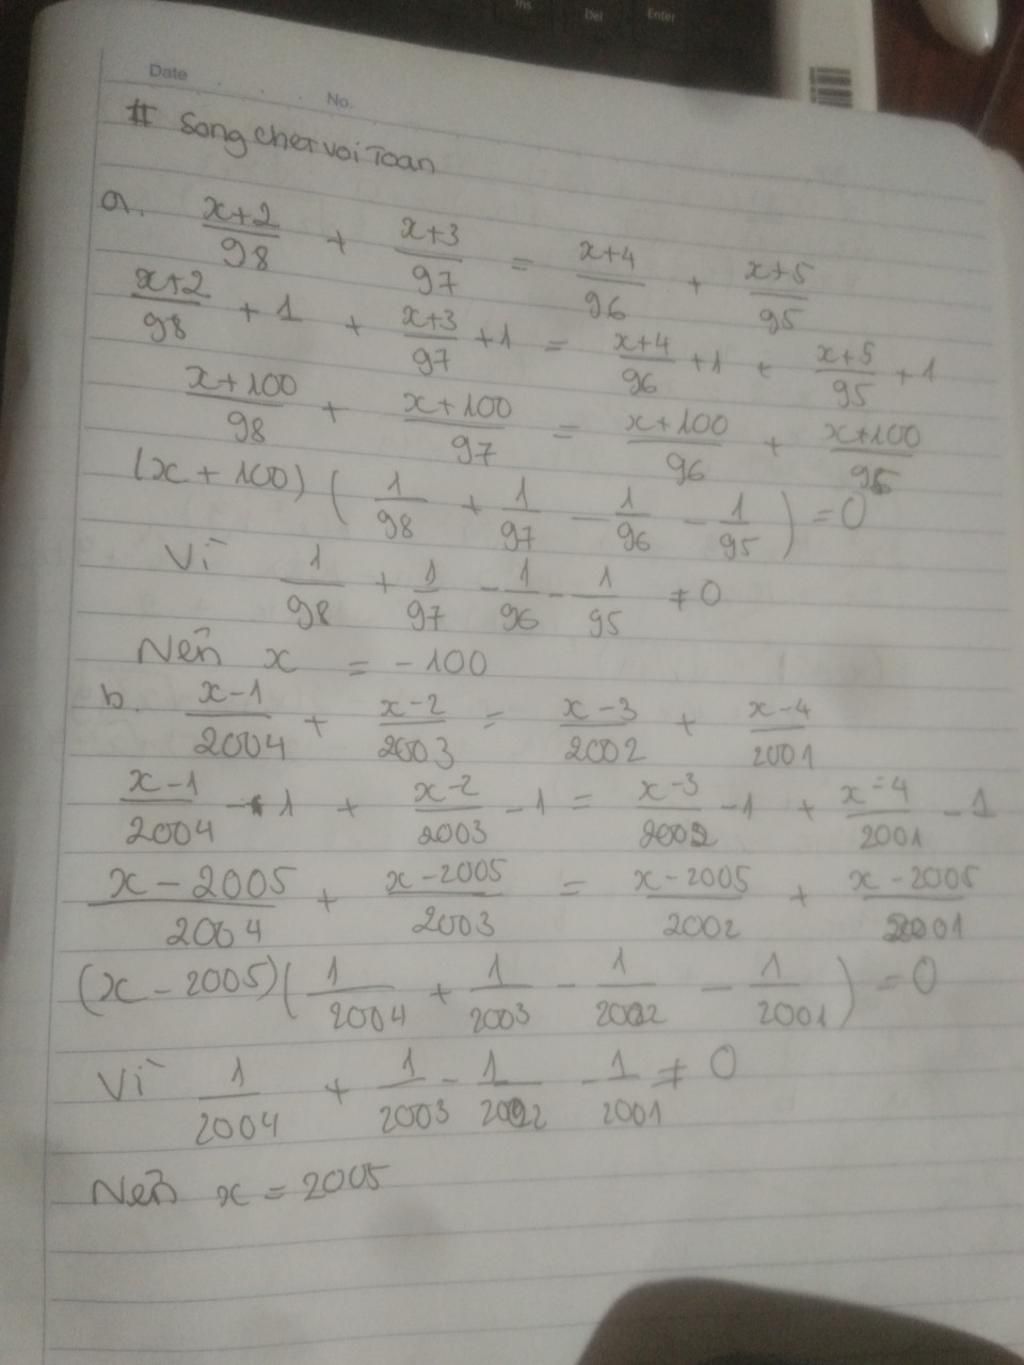 Ins Del Enter
Date No.
# Song chet voi Toan
a. (x+2)/98 + (x+3)/97 = (x+4)/96 + (x+5)/95
(x+2)/98 + 1 + (x+3)/97 + 1 = (x+4)/96 + 1 + (x+5)/95 + 1
(x+100)/98 + (x+100)/97 = (x+100)/96 + (x+100)/95
(x + 100) (1/98 + 1/97 - 1/96 - 1/95) = 0
Vì 1/98 + 1/97 - 1/96 - 1/95 ≠ 0
Nên x = -100
b. (x-1)/2004 + (x-2)/2003 = (x-3)/2002 + (x-4)/2001
(x-1)/2004 - 1 + (x-2)/2003 - 1 = (x-3)/2002 - 1 + (x-4)/2001 - 1
(x-2005)/2004 + (x-2005)/2003 = (x-2005)/2002 + (x-2005)/2001
(x - 2005) (1/2004 + 1/2003 - 1/2002 - 1/2001) = 0
Vì 1/2004 + 1/2003 - 1/2002 - 1/2001 ≠ 0
Nên x = 2005